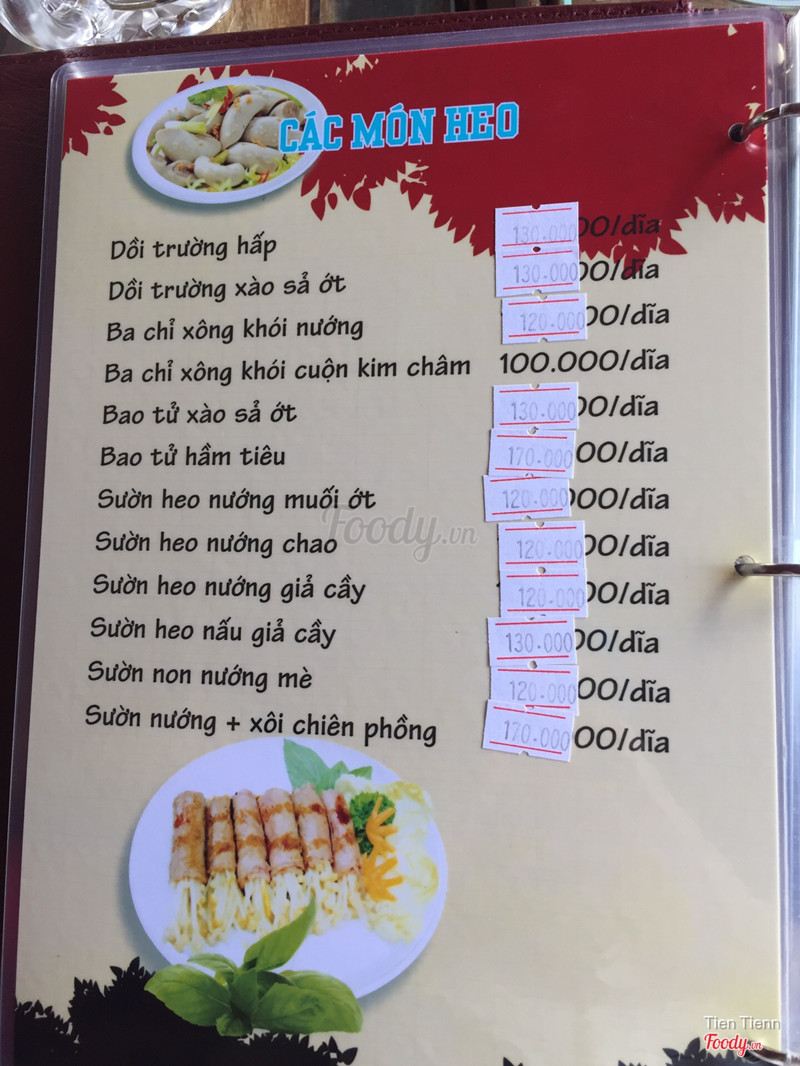 CÁC MÓN HEO
Dồi trường hấp 130.000 00/dĩa
Dồi trường xào sả ớt 130.000 00/dĩa
Ba chỉ xông khói nướng 120.000 00/dĩa
Ba chỉ xông khói cuộn kim châm 100.000/dĩa
Bao tử xào sả ớt 130.000 00/dĩa
Bao tử hầm tiêu 170.000 00/dĩa
Sườn heo nướng muối ớt 120.000 00/dĩa
Sườn heo nướng chao 120.000 00/dĩa
Sườn heo nướng giả cầy 120.000 00/dĩa
Sườn heo nấu giả cầy 130.000 00/dĩa
Sườn non nướng mè 120.000 00/dĩa
Sườn nướng + xôi chiên phồng 170.000 00/dĩa
Foody.vn
Tien Tienn
Foody.vn